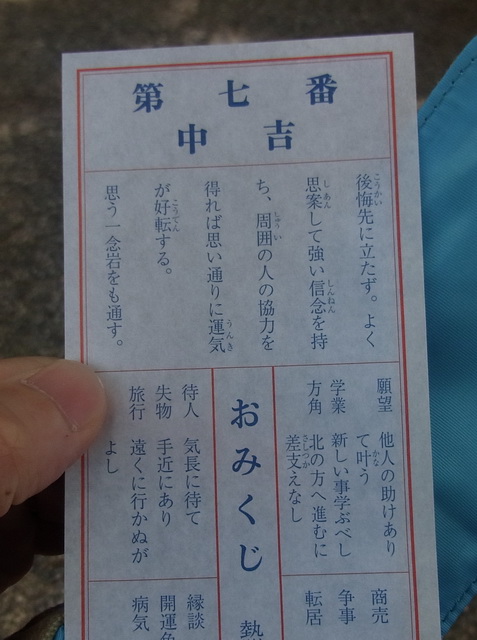 第七番
中吉
後悔先に立たず。よく
思案して強い信念を持
ち、周囲の人の協力を
得れば思い通りに運気
が好転する。
思う一念岩をも通す。
願望 他人の助けあり
て叶う
学業 新しい事学ぶべし
方角 北の方へ進むに
差支えなし
おみくじ
待人 気長に待て
失物 手近にあり
旅行 遠くに行かぬが
よし
商売
争事
転居
縁談
開運
病気